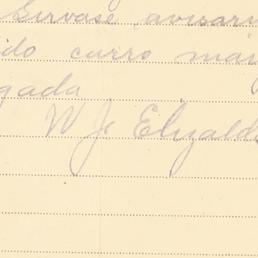 Sirvase avisar
ido carro ma
gada
W Jr Elizald